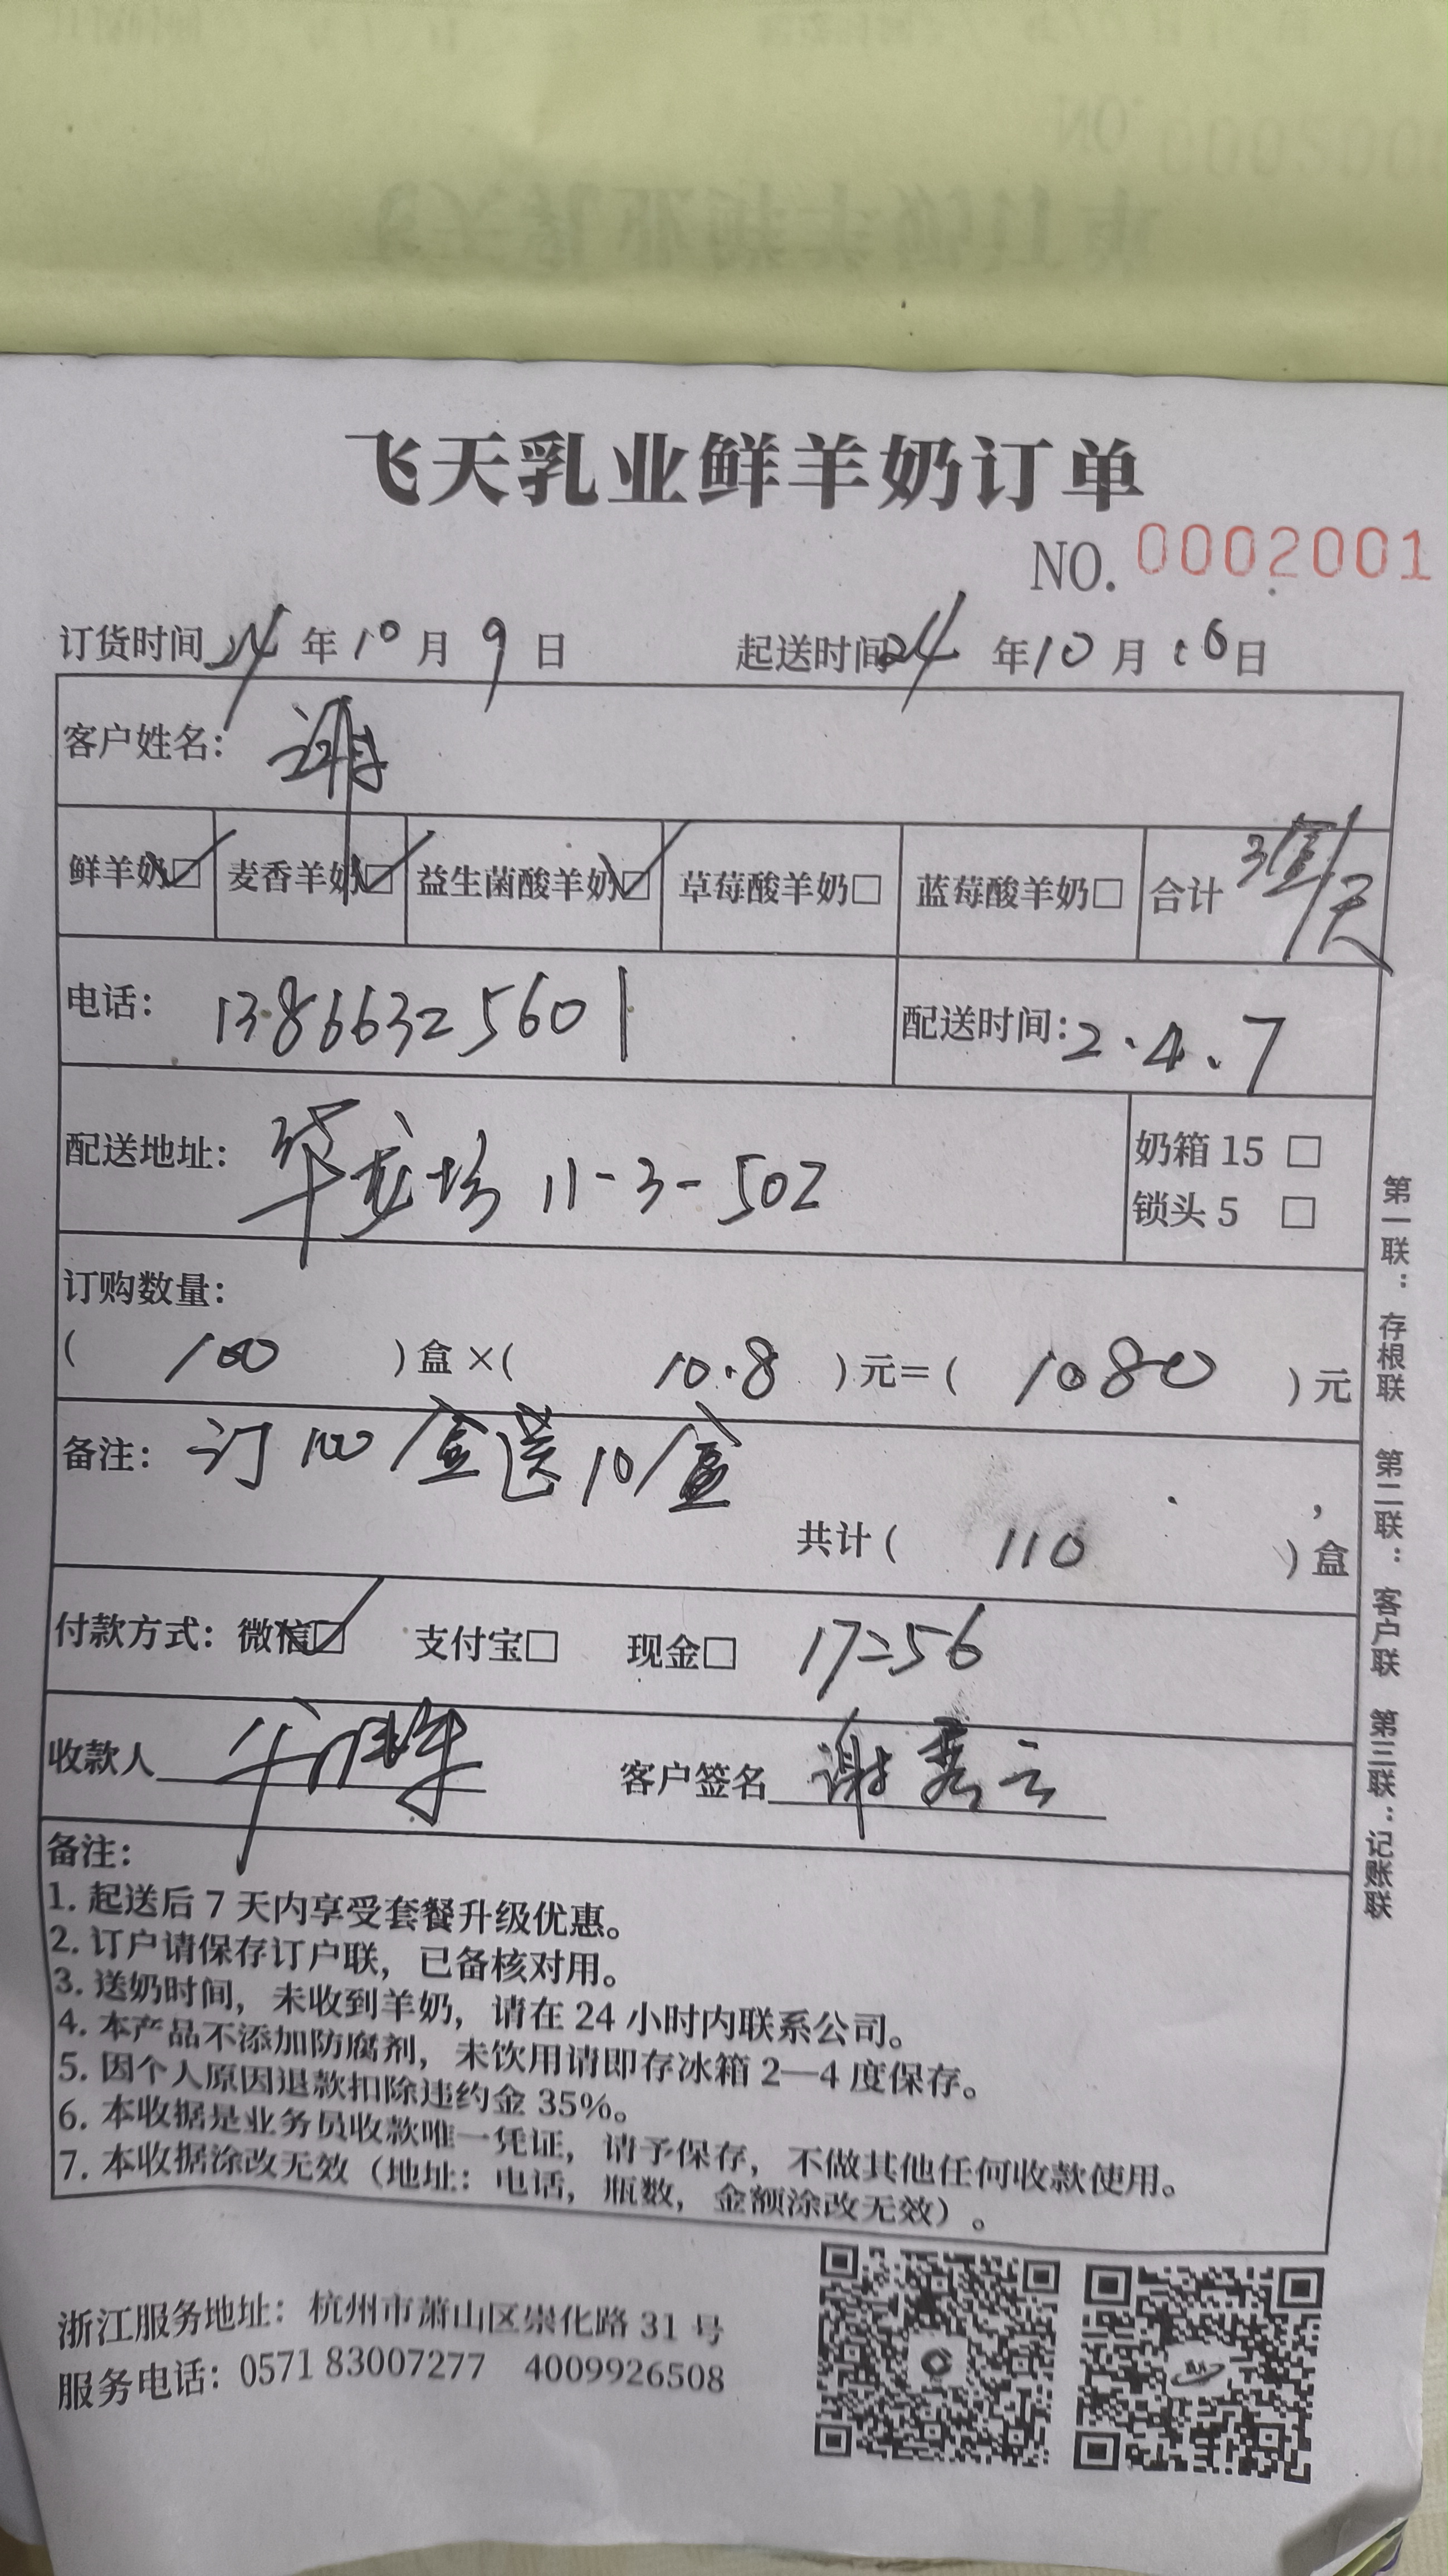 飞天乳业鲜羊奶订单
NO. 0002001
订货时间 24 年 10 月 9 日 起送时间 24 年 10 月 10 日
客户姓名： 谢
鲜羊奶☑ 麦香羊奶☑ 益生菌酸羊奶☑ 草莓酸羊奶□ 蓝莓酸羊奶□ 合计 3盒/天
电话： 13866325601 配送时间：2.4.7
配送地址： 华龙坊 11-3-502
奶箱 15 □
锁头 5 □
订购数量：
( 100 ) 盒 ×( 10.8 ) 元＝( 1080 ) 元
备注： 订 100 盒送 10 盒
共计 ( 110 ) 盒
付款方式： 微信☑ 支付宝□ 现金□ 17=56
收款人 客户签名 谢秀云
备注：
1. 起送后 7 天内享受套餐升级优惠。
2. 订户请保存订户联，已备核对用。
3. 送奶时间，未收到羊奶，请在 24 小时内联系公司。
4. 本产品不添加防腐剂，未饮用请即存冰箱 2—4 度保存。
5. 因个人原因退款扣除违约金 35%。
6. 本收据是业务员收款唯一凭证，请予保存，不做其他任何收款使用。
7. 本收据涂改无效（地址：电话，瓶数，金额涂改无效）。
第一联：存根联 第二联：客户联 第三联：记账联
浙江服务地址：杭州市萧山区崇化路 31 号
服务电话：0571 83007277 4009926508